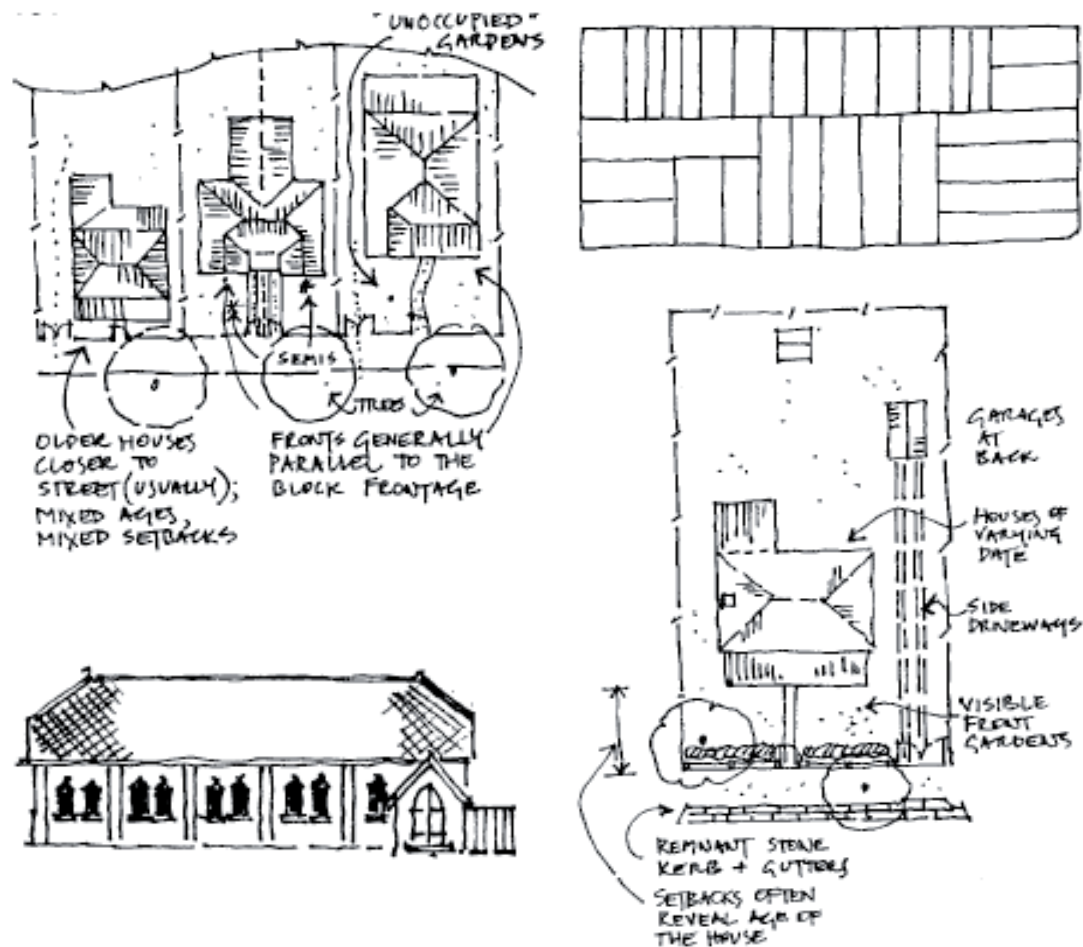 "UNOCCUPIED"
GARDENS
SEMIS
TREES
OLDER HOUSES
CLOSER TO
STREET (USUALLY);
MIXED AGES,
MIXED SETBACKS
FRONTS GENERALLY
PARALLEL TO THE
BLOCK FRONTAGE
GARAGES
AT
BACK
HOUSES OF
VARYING
DATE
SIDE
DRIVEWAYS
VISIBLE
FRONT
GARDENS
REMNANT STONE
KERB + GUTTERS
SETBACKS OFTEN
REVEAL AGE OF
THE HOUSE